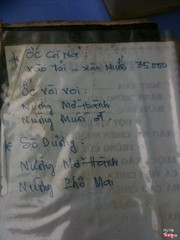 * ỐC Cà Na:
Xào Tỏi - xào Muối 35.000
* Ốc Vòi Voi:
Nướng Mỡ Hành
Nướng Muối ớt.
* Sò Dương:
Nướng Mỡ Hành
Nướng Phô Mai